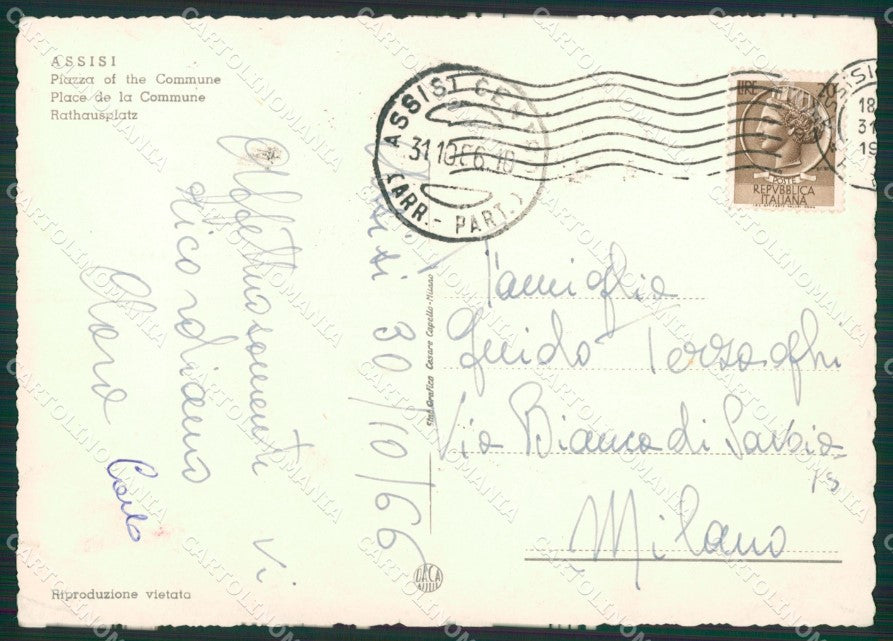 ASSISI
Piazza of the Commune
Place de la Commune
Rathausplatz
Affettuosamente Vi
ricordiamo
Clara
Carlo
Assisi 30/10/66
Riproduzione vietata
Stab. Grafico Cesare Capello - Milano
DACA
ASSISI CENTRO
31.10.66.18
(ARR. - PART.)
LIRE 20
POSTE
REPVBBLICA
ITALIANA
ASSISI
18
31
19
Famiglia
Guido Terzaghi
Via Bianca di Savoia
15
Milano
CARTOLINOMANIA